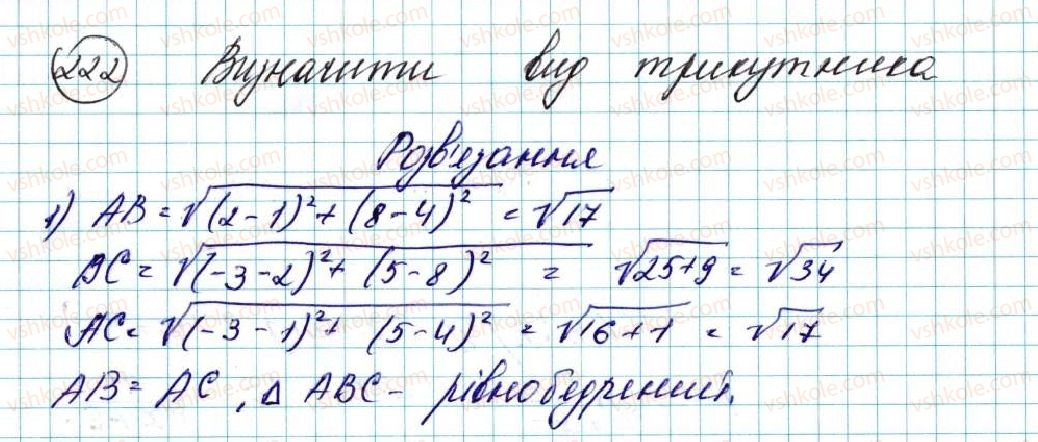 222 Визначити вид трикутника
Розв'язання
1) AB = √((2-1)²+(8-4)²) = √17
BC = √((-3-2)²+(5-8)²) = √(25+9) = √34
AC = √((-3-1)²+(5-4)²) = √(16+1) = √17
AB = AC, Δ ABC - рівнобедрений.